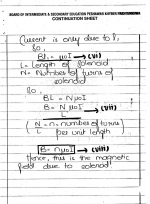 BOARD OF INTERMEDIATE & SECONDARY EDUCATION PESHAWAR KHYBER PAKHTUNKHWA
CONTINUATION SHEET
Current is only due to I,
So,
BL = μ₀I → (vi)
L = Length of solenoid
N = Number of turns of
solenoid
So,
BL = NμoI
B = NμoI → (vii)
L
(N = n = number of turns)
L per unit length
B = nμoI → (viii)
Hence, this is the magnetic
field due to solenoid